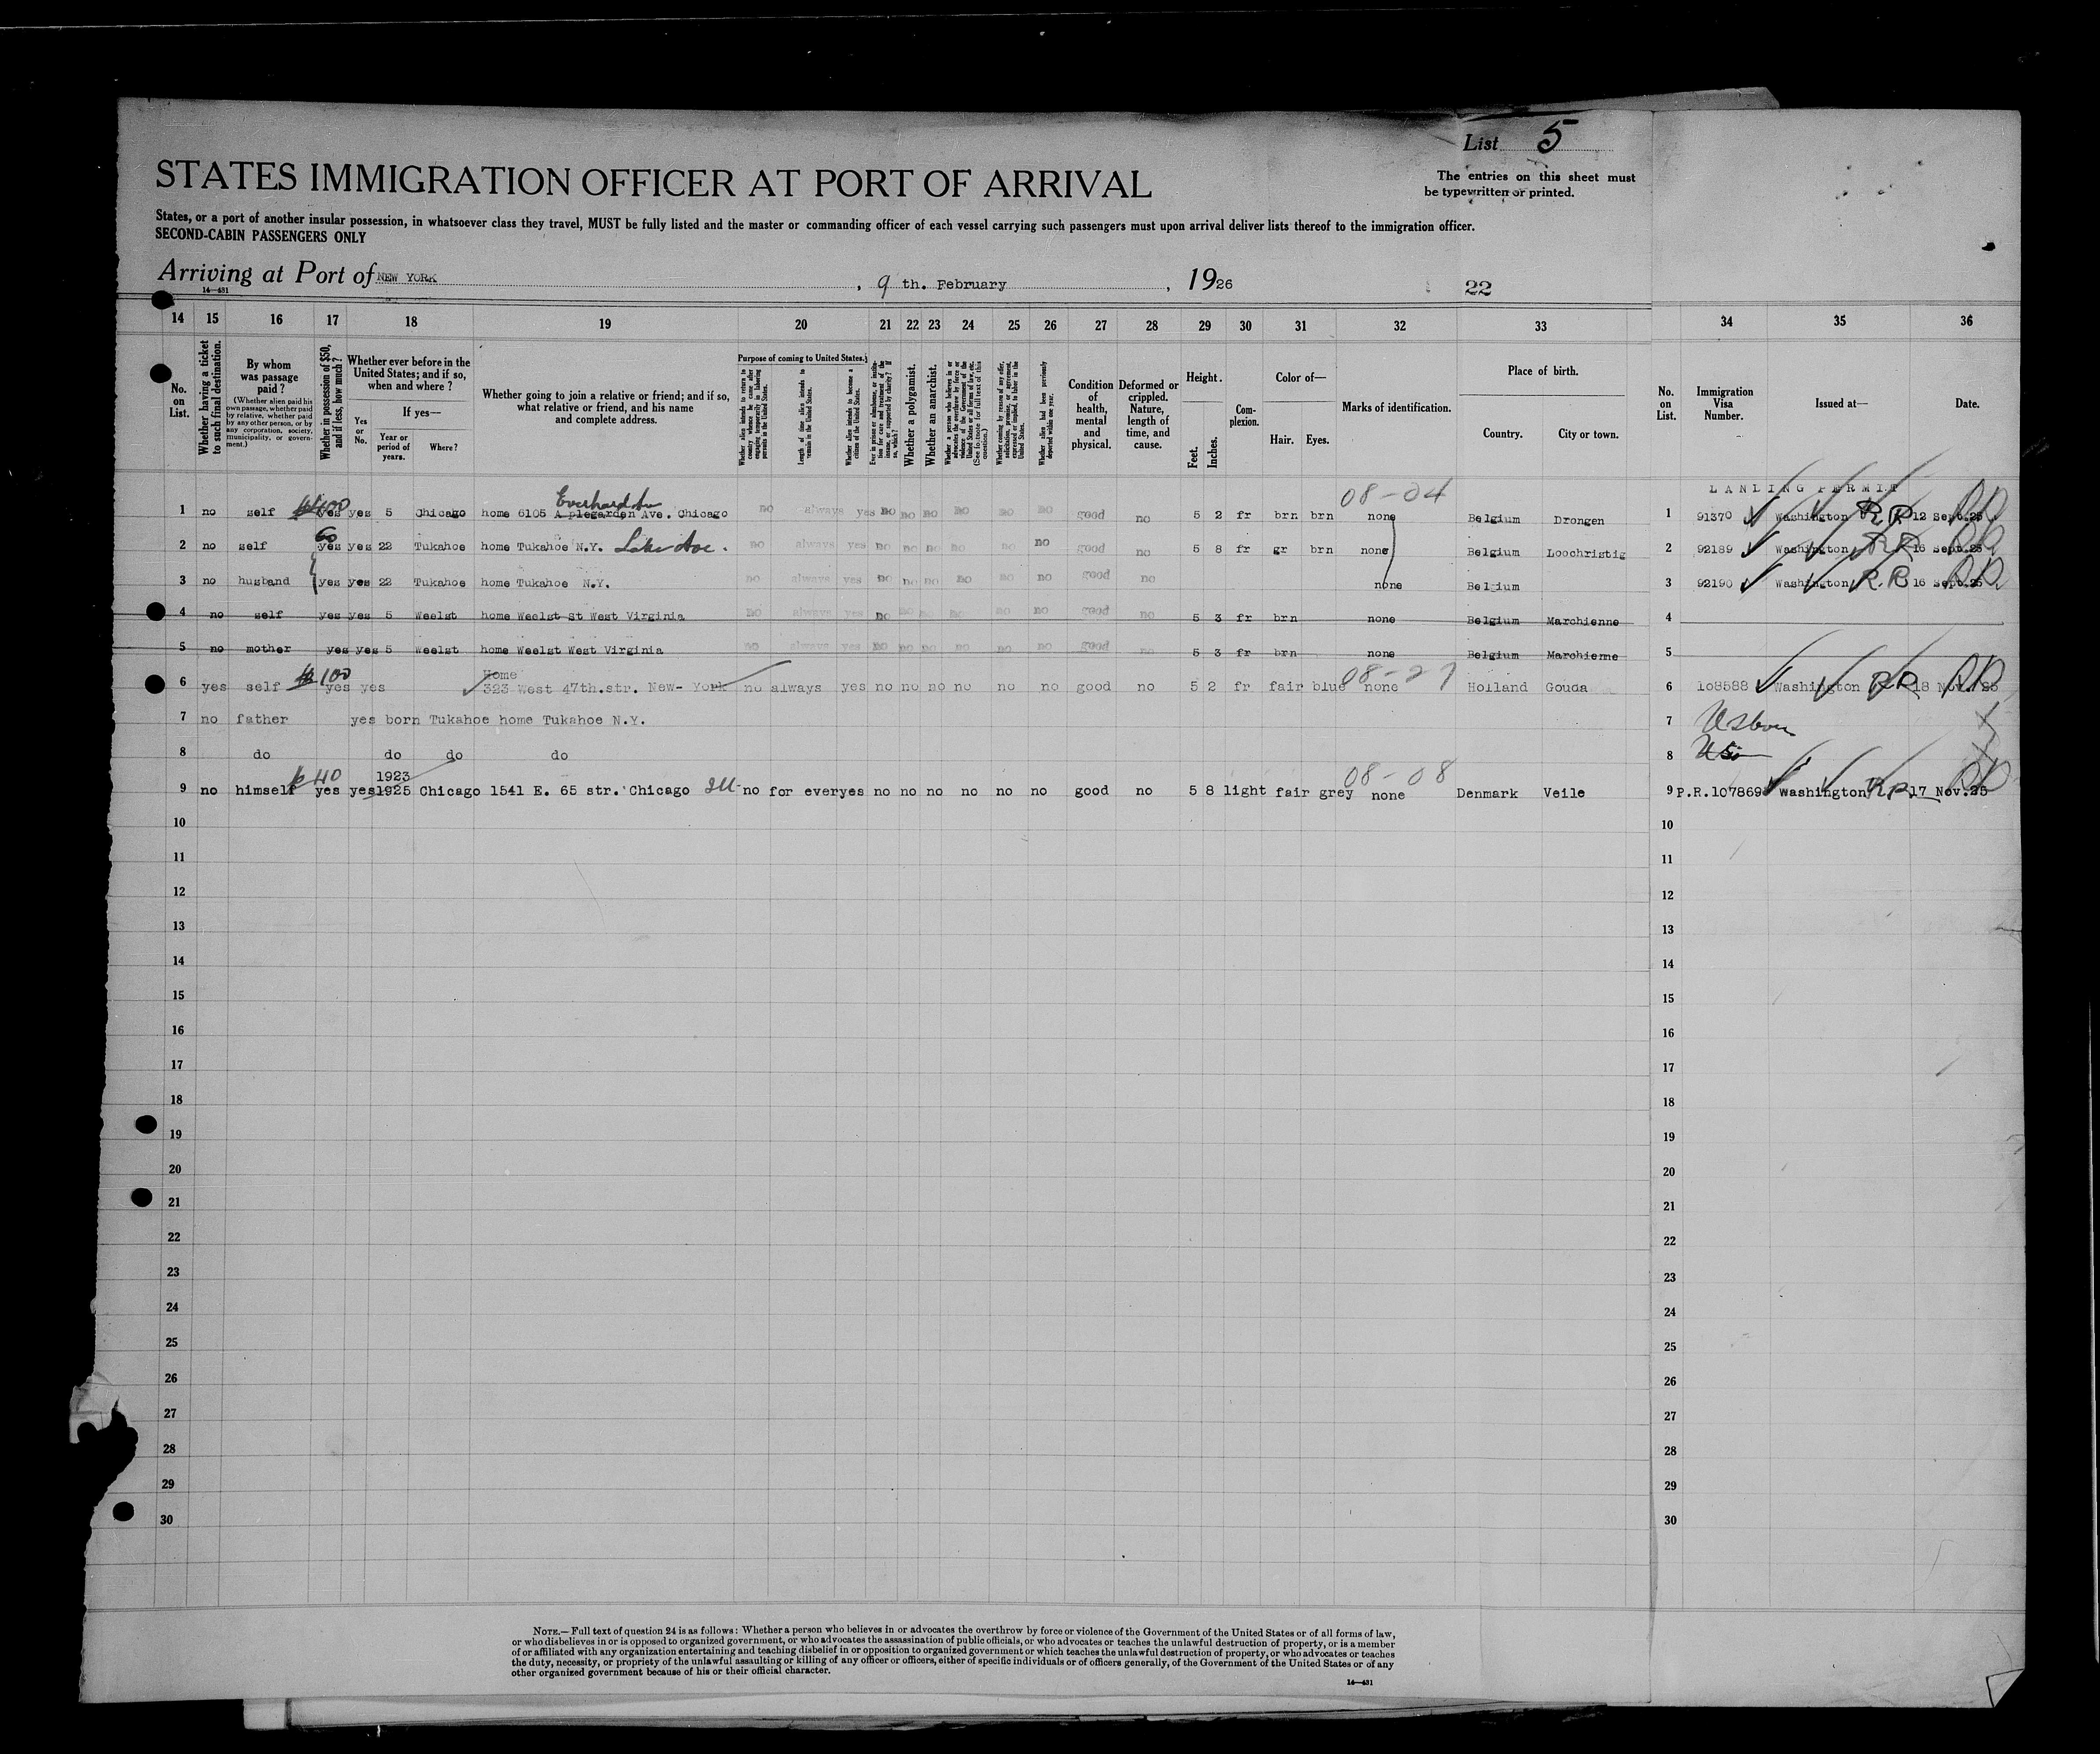 List 5
STATES IMMIGRATION OFFICER AT PORT OF ARRIVAL
The entries on this sheet must
be typewritten or printed.
States, or a port of another insular possession, in whatsoever class they travel, MUST be fully listed and the master or commanding officer of each vessel carrying such passengers must upon arrival deliver lists thereof to the immigration officer.
SECOND-CABIN PASSENGERS ONLY
Arriving at Port of NEW YORK , 9 th. February , 1926
14—431
22
14 15 16 17 18 19 20 21 22 23 24 25 26 27 28 29 30 31 32 33 34 35 36
No. on List.
Whether having a ticket to such final destination.
By whom was passage paid?
(Whether alien paid his own passage, whether paid by relative, whether paid by any other person, or by any corporation, society, municipality, or government.)
Whether in possession of $50, and if less, how much?
Whether ever before in the United States; and if so, when and where?
Yes or No.
If yes—
Year or period of years.
Where?
Whether going to join a relative or friend; and if so, what relative or friend, and his name and complete address.
Purpose of coming to United States.
Whether alien intends to return to country whence he came after engaging temporarily in laboring pursuits in the United States.
Length of time alien intends to remain in the United States.
Whether alien intends to become a citizen of the United States.
Ever in prison or almshouse, or institution for care and treatment of the insane, or supported by charity? If so, which?
Whether a polygamist.
Whether an anarchist.
Whether a person who believes in or advocates the overthrow by force or violence of the Government of the United States or all forms of law, etc. (See footnote for full text of this question.)
Whether coming by reason of any offer, solicitation, promise, or agreement, expressed or implied, to labor in the United States.
Whether alien had been previously deported within one year.
Condition of health, mental and physical.
Deformed or crippled. Nature, length of time, and cause.
Height.
Feet. Inches.
Complexion.
Color of—
Hair. Eyes.
Marks of identification.
Place of birth.
Country. City or town.
No. on List.
Immigration Visa Number.
Issued at—
Date.
08-04 LANDING PERMIT
1 no self 100 yes yes 5 Chicago home 6105 A plegarden Ave. Chicago no always yes no no no no no no good no 5 2 fr brn brn none Belgium Drongen 1 91370 Washington RR 12 Sept.25
60
2 no self yes yes 22 Tukahoe home Tukahoe N.Y. Lake Ave. no always yes no no no no no no good no 5 8 fr gr brn none Belgium Loochristig 2 92189 Washington RR 16 Sept.25
3 no husband yes yes 22 Tukahoe home Tukahoe N.Y. no always yes no no no no no no good no none Belgium 3 92190 Washington R.R 16 Sept.25
4 no self yes yes 5 Weelst home Weelst St West Virginia no always yes no no no no no no good no 5 3 fr brn none Belgium Marchienne 4
5 no mother yes yes 5 Weelst home Weelst West Virginia no always yes no no no no no no good no 5 3 fr brn none Belgium Marchienne 5
$100 Home 08-27
6 yes self yes yes 323 West 47th.str. New-York no always yes no no no no no no good no 5 2 fr fair blue none Holland Gouda 6 108588 Washington RR 18 Nov.25
7 no father yes born Tukahoe home Tukahoe N.Y. 7 US born
8 do do do do 8
$40 1923 08-08
9 no himself yes yes 1925 Chicago 1541 E. 65 str. Chicago Ill no for ever yes no no no no no no good no 5 8 light fair grey none Denmark Veile 9 P.R.107869 Washington RR 17 Nov.25
10 10
11 11
12 12
13 13
14 14
15 15
16 16
17 17
18 18
19 19
20 20
21 21
22 22
23 23
24 24
25 25
26 26
27 27
28 28
29 29
30 30
NOTE.—Full text of question 24 is as follows: Whether a person who believes in or advocates the overthrow by force or violence of the Government of the United States or of all forms of law,
or who disbelieves in or is opposed to organized government, or who advocates the assassination of public officials, or who advocates or teaches the unlawful destruction of property, or is a member
of or affiliated with any organization entertaining and teaching disbelief in or opposition to organized government or which teaches the unlawful destruction of property, or who advocates or teaches
the duty, necessity, or propriety of the unlawful assaulting or killing of any officer or officers, either of specific individuals or of officers generally, of the Government of the United States or of any
other organized government because of his or their official character.
14—431